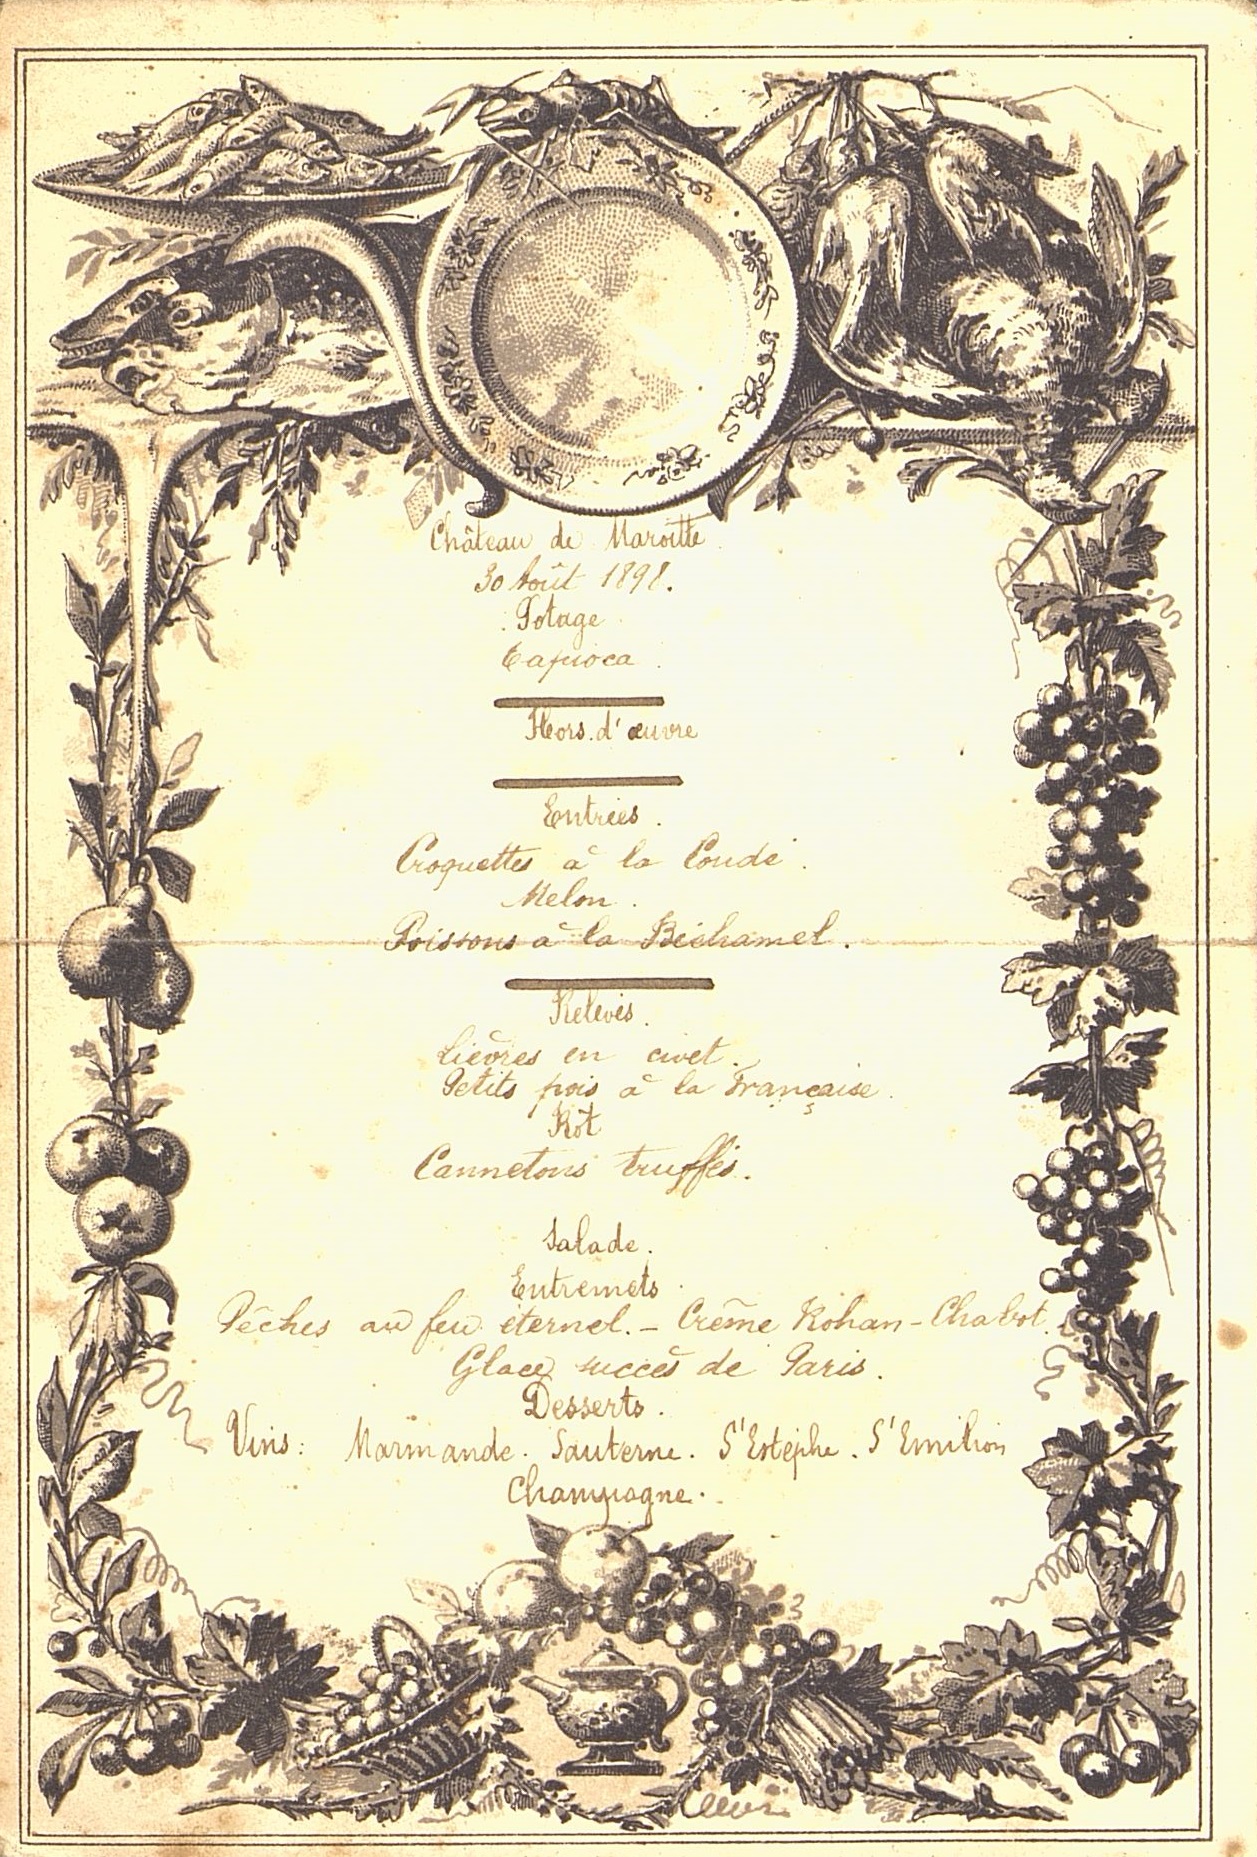 Château de Maroitte
30 Août 1898.
Potage
Tapioca.
Hors d'œuvre
Entrées.
Croquettes à la Condé.
Melon.
Poissons à la Béchamel.
Relevés.
Lièvres en civet.
Petits pois à la Française.
Rôt
Cannetons truffés.
Salade.
Entremets.
Pêches au feu éternel. – Crème Rohan-Chabot.
Glace succès de Paris.
Desserts.
Vins: Marmande. Sauterne. St Estèphe. St Emilion
Champagne.